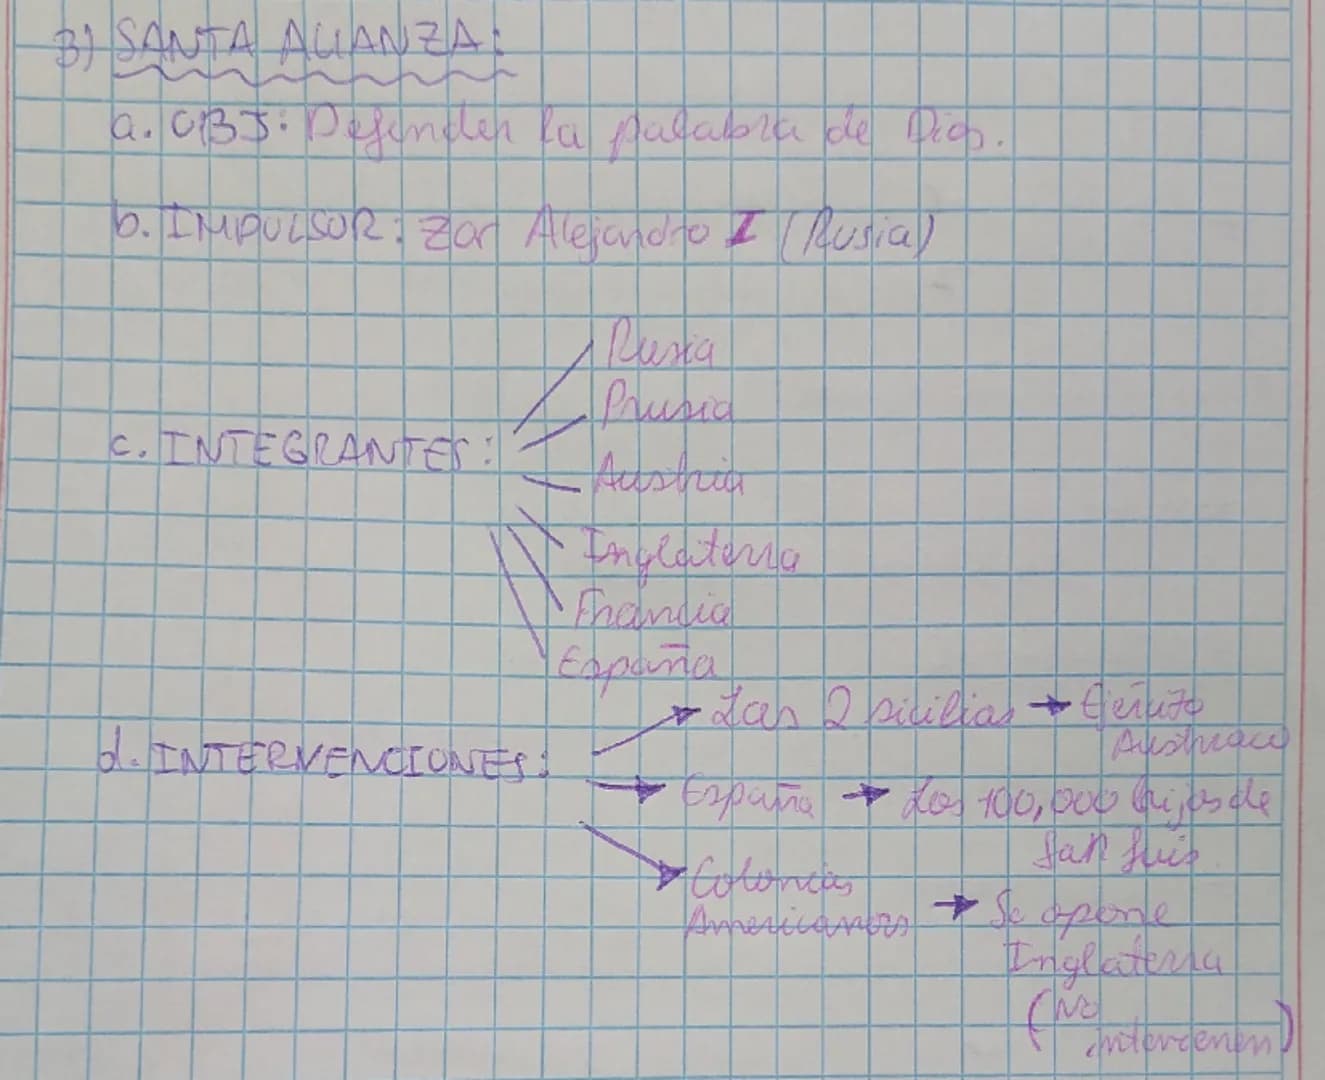 3) SANTA ALIANZA:
a. OBJ: Defender la palabra de Dios.
b. IMPULSOR: Zar Alejandro I (Rusia)
Rusia
Prusia
c. INTEGRANTES:
Austria
Inglaterra
Francia
España
d. INTERVENCIONES:
Las 2 sicilias → Ejército
Austriaco
España → Los 100,000 hijos de
San Luis
Colonias
Americanas → Se opone
Inglaterra
(No
intervienen)